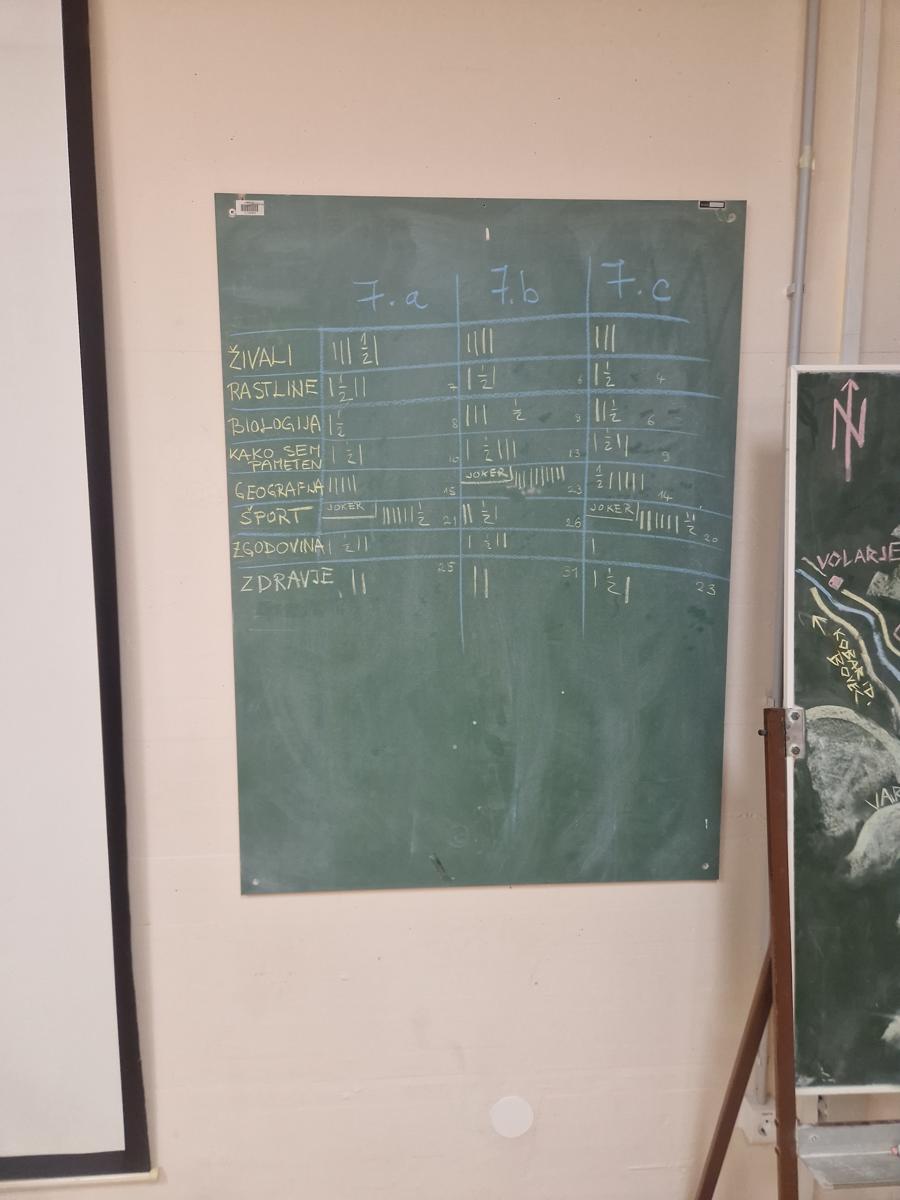 7.a 7.b 7.c
ŽIVALI ||| ½ | |||| |||
RASTLINE | ½ || 7 | ½ | 6 | ½ 4
BIOLOGIJA | ½ 8 ||| ½ 9 || ½ 6
KAKO SEM PAMETEN | ½ | 10 | ½ ||| 13 | ½ || 9
GEOGRAFIJA ||||| 15 JOKER |||||||||| 23 ½ ||||| 14
ŠPORT JOKER |||||| ½ 21 || ½ | 26 JOKER |||||| ½ 20
ZGODOVINA | ½ || 25 | ½ || 31 |
ZDRAVJE || || | ½ | 23
N
VOLARJE
KOBARID
BOVEC